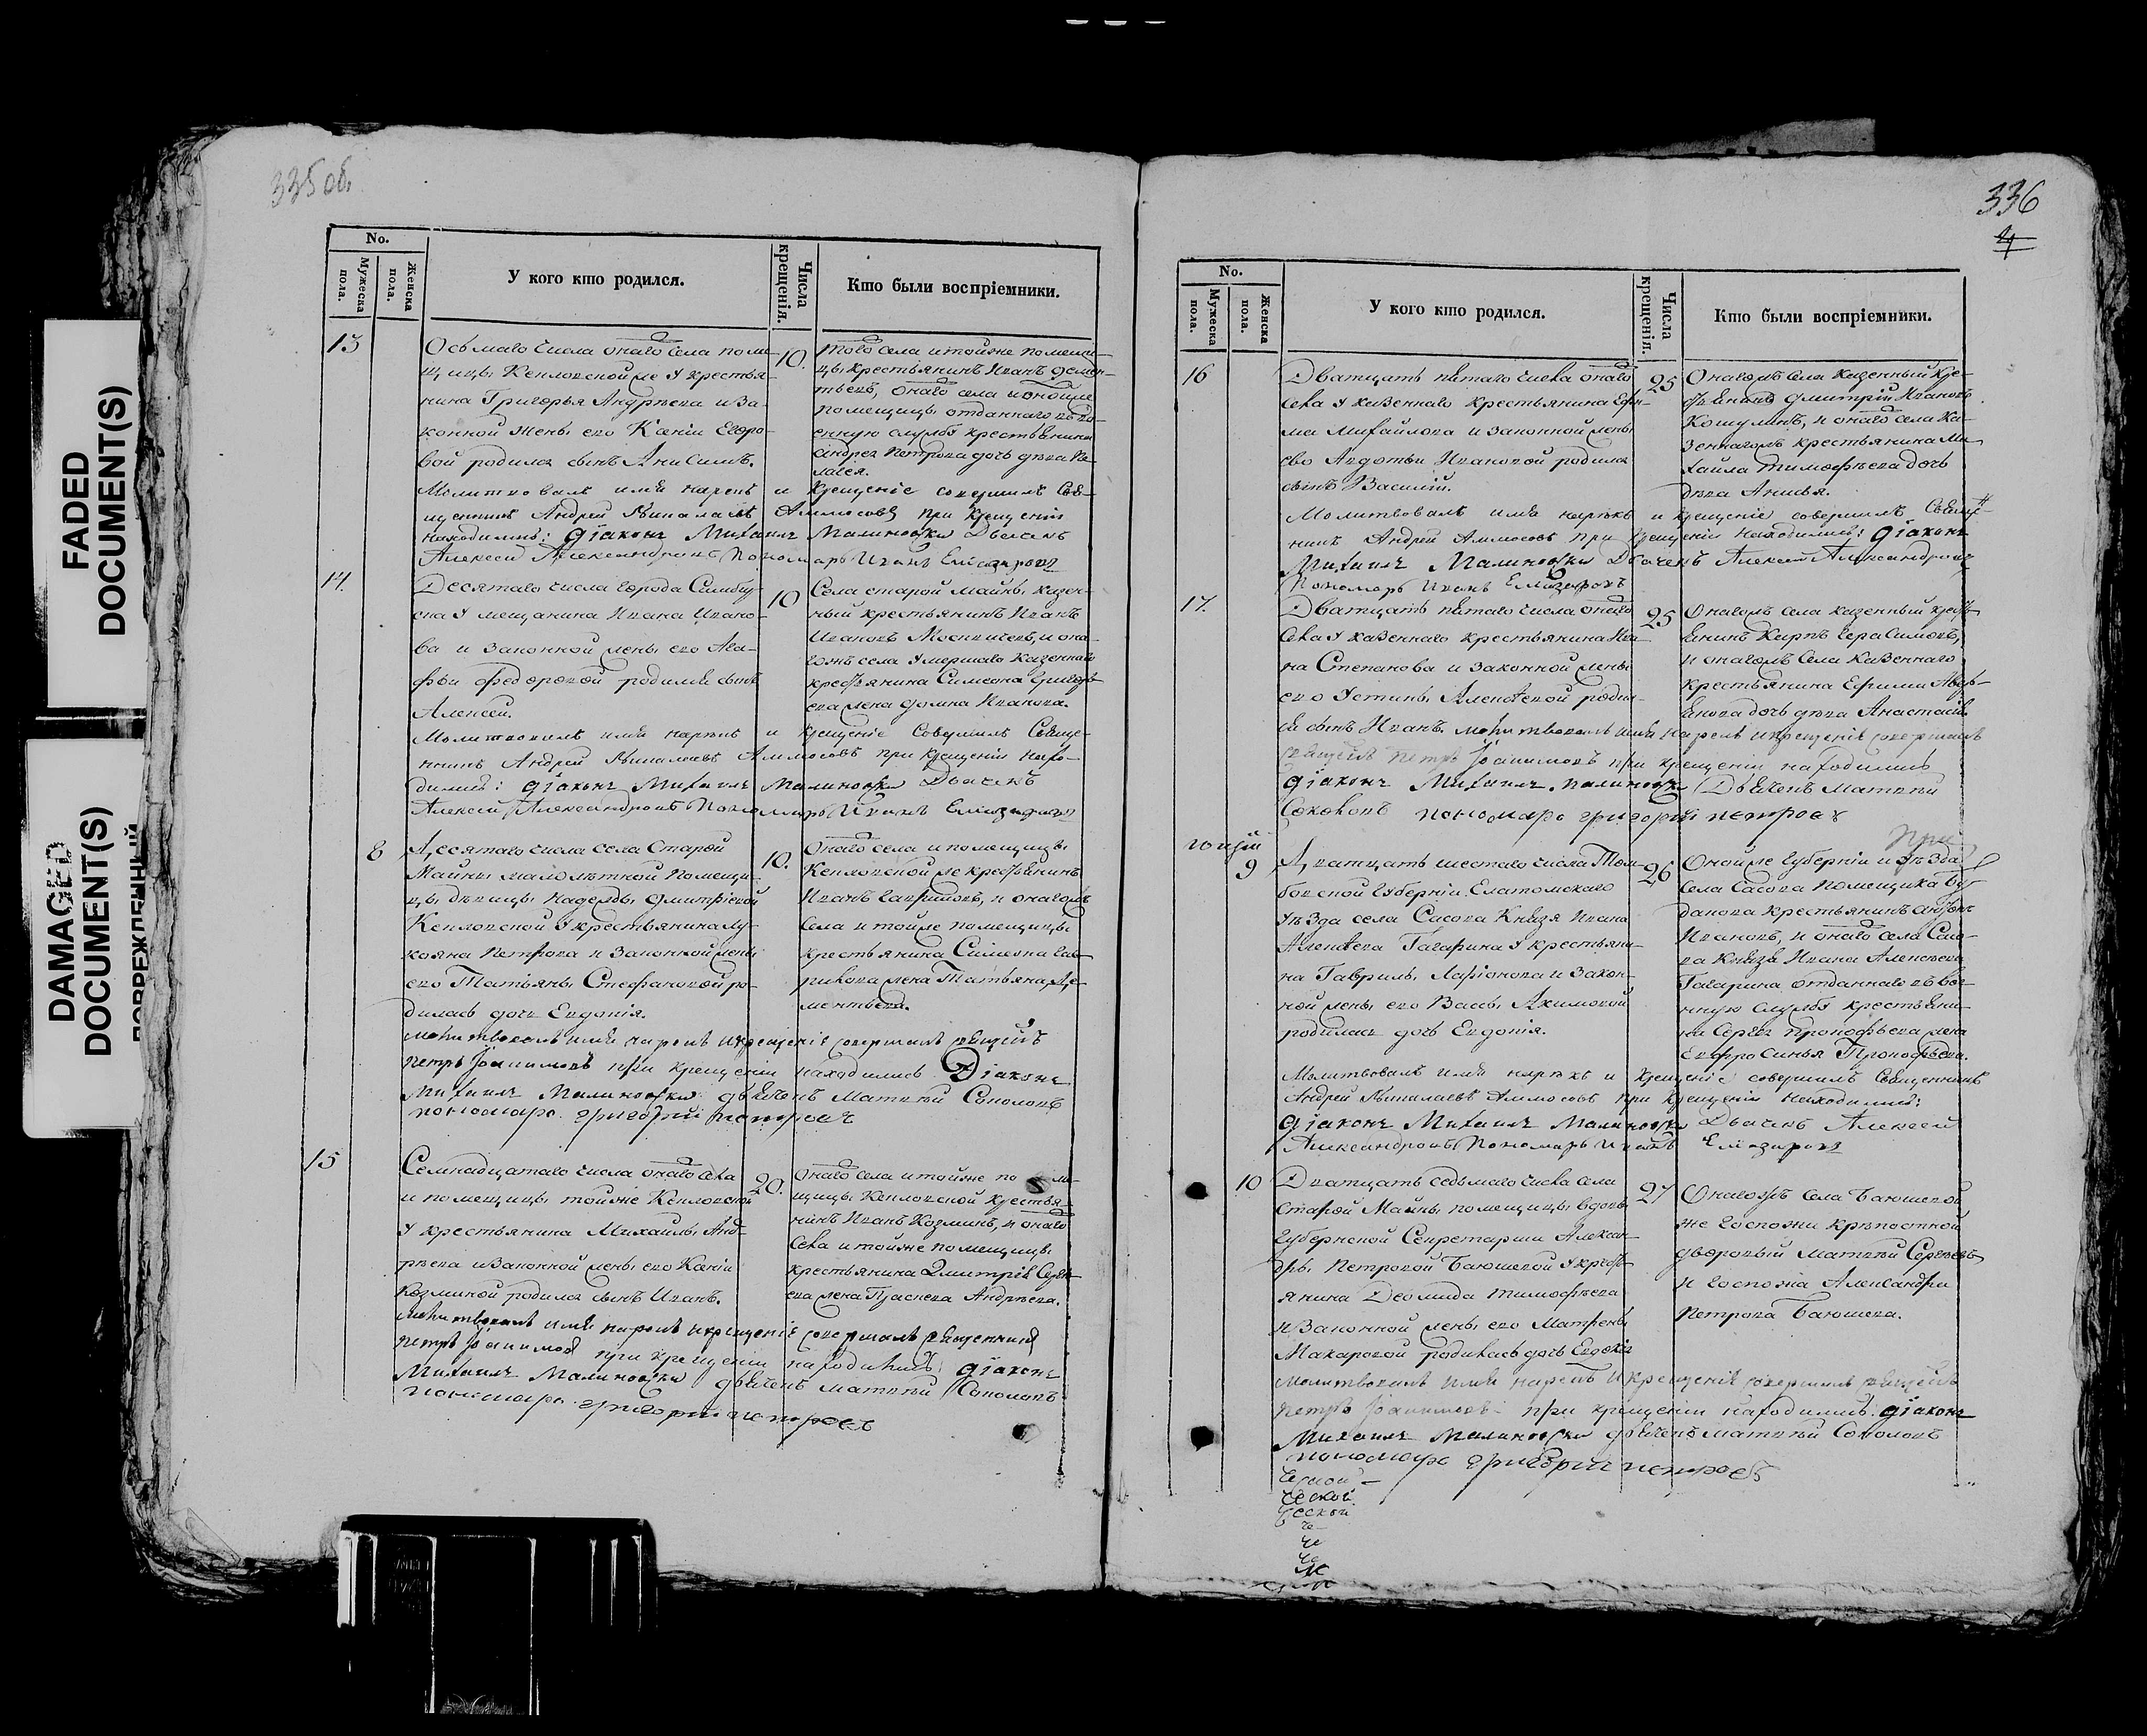 FADED
DOCUMENT(S)
DAMAGED
DOCUMENT(S)
ПОВРЕЖДЕННЫЙ
335 об.
No.
Мужеска пола.
Женска пола.
У кого кто родился.
Числа крещенія.
Кто были воспріемники.
13
Осьмаго числа онаго села поме-
щицы Кепловской же у крестья-
нина Григорья Андреева и за-
конной жены его Ксении Егоро-
вой родился сынъ Анисимъ.
10.
того села и тойже помещи-
цы крестьянинъ Иванъ Демен-
тьевъ, онаго села и оной же
помещицы отданнаго въ во-
енную службу крестьянина
Андрея Петрова дочь девка Пе-
лагея.
Молитвовалъ имя нарекъ и крещеніе совершилъ Свя-
щенникъ Андрей Аммосовъ при крещеніи
находились: Діаконъ Михаилъ Малиновски Дьячекъ
Алексей Александровъ Пономарь Иванъ Елизаровъ
14.
Десятаго числа города Симбир-
ска у мещанина Ивана Ивано-
ва и законной жены его Ага-
фьи Федоровой родился сынъ
Алексей.
10
Села старой Майны казен-
ный крестьянинъ Иванъ
Ивановъ Москвичевъ, и она-
гожъ села умершаго казеннаго
крестьянина Симеона Григорь-
ева жена Домна Иванова.
Молитвовалъ имя нарекъ и крещеніе совершилъ Свяще-
нникъ Андрей Аммосовъ при крещеніи нахо-
дились: Діаконъ Михаилъ Малиновски Дьячекъ
Алексей Александровъ Пономарь Иванъ Елизаровъ
8
Десятаго числа села Старой
Майны малолетной помещи-
цы девицы Надежды Дмитріевой
Кепловской у крестьянина Лу-
кояна Петрова и законной жены
его Татьяны Стефановой ро-
дилась дочь Евдокія.
10.
Онаго села и помещицы
Кепловской же крестьянинъ
Иванъ Гавриловъ, и онагожъ
села и тойже помещицы
крестьянина Симеона Гав-
рилова жена Татьяна Де-
ментьева.
молитвовалъ имя нарекъ и крещеніе совершилъ священникъ
Петръ при крещеніи находились Діаконъ
Михаилъ Малиновски дьячекъ Матвей Соколовъ
пономарь Григорій Петровъ
15
Семнадцатаго числа онаго села
и помещицы тойже Кепловской
у крестьянина Михаилы Анд-
реева и законной жены его Ксении
Козминой родился сынъ Иванъ.
20.
Онаго села и тойже поме-
щицы Кепловской крестья-
нинъ Иванъ Козминъ, и онаго
села и тойже помещицы
крестьянина Дмитрія Серге-
ева жена Праскева Андреева.
молитвовалъ имя нарекъ и крещеніе совершилъ священникъ
Петръ при крещеніи находились Діаконъ
Михаилъ Малиновски дьячекъ Матвей Соколовъ
пономарь Григорій Петровъ
336
4
No.
Мужеска пола.
Женска пола.
У кого кто родился.
Числа крещенія.
Кто были воспріемники.
16
Дватцать пятаго числа онаго
села у казеннаго крестьянина Ефи-
ма Михайлова и законной жены
его Авдотьи Ивановой родился
сынъ Василій.
25
Онагожъ села казенный кре-
стьянинъ Дмитрій Ивановъ
Кошулинъ, и онаго села ка-
зеннагожъ крестьянина Ми-
хайла Тимофеева дочь
девка Анисья.
Молитвовалъ имя нарекъ и крещеніе совершилъ Священ-
никъ Андрей Аммосовъ при крещеніи находились: Діаконъ
Михаилъ Малиновски Дьячекъ Алексей Александровъ
Пономарь Иванъ Елизаровъ
17.
Дватцать пятаго числа онаго
села у казеннаго крестьянина Ива-
на Степанова и законной жены
его Устины Алексеевой родил-
ся сынъ Иванъ. молитвовалъ имя нарекъ и крещеніе совершилъ
25
Онагожъ села казенный кресть-
янинъ Карпъ Герасимовъ,
и онагожъ села казеннаго
крестьянина Ефима Аверь-
янова дочь девка Анастасія.
священникъ Петръ при крещеніи находились
Діаконъ Михаилъ Малиновски Дьячекъ Матвей
Соколовъ пономарь Григорій Петровъ
9
Дватцать шестаго числа Там-
бовской Губерніи Елатомскаго
уезда села Сасова Князя Ивана
Алексеева Гагарина у крестьяни-
на Гаврилы Ларіонова и закон-
ной жены его Вассы Акимовой
родилась дочь Евдокія.
26
Онойже Губерніи и уезда
села Сасова помещика
крестьянинъ Антонъ
Ивановъ, и онаго села Сасо-
ва Князя Ивана Алексеева
Гагарина отданнаго въ вое-
нную службу крестьяни-
на Сергея Прокофьева жена
Евфросинья Прокофьева.
Молитвовалъ имя нарекъ и крещеніе совершилъ Священникъ
Андрей Аммосовъ при крещеніи находились:
Діаконъ Михаилъ Малиновски Дьячекъ Алексей
Александровъ Пономарь Иванъ Елизаровъ
10
Дватцать седьмаго числа села
Старой Майны помещицы вдовы
Губернской Секретарши Алексан-
дры Петровой Баюшевой у кресть-
янина Деомида Тимофеева
и законной жены его Матрены
Макаровой родилась дочь Евдокія
27
Онагожъ села Баюшевой
же Госпожи крепостной
дворовый Матвей Сергеевъ,
и Госпожа Александра
Петрова Баюшева.
молитвовалъ имя нарекъ и крещеніе совершилъ священникъ
Петръ при крещеніи находились. Діаконъ
Михаилъ Малиновски дьячекъ Матвей Соколовъ
пономарь Григорій Петровъ